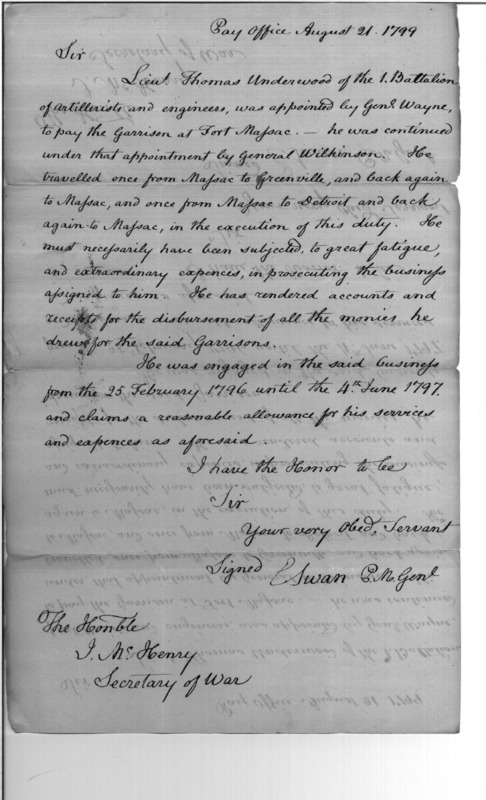 Pay Office August 21. 1799
Sir
Lieut. Thomas Underwood of the 1. Battalion
of artillerists and engineers, was appointed by Genl. Wayne,
to pay the Garrison at Fort Massac. — he was continued
under that appointment by General Wilkinson. He
travelled once from Massac to Greenville, and back again
to Massac, and once from Massac to Detroit and back
again to Massac, in the execution of this duty. He
must necessarily have been subjected, to great fatigue,
and extraordinary expences, in prosecuting the business
assigned to him. He has rendered accounts and
receipts for the disbursement of all the monies he
drew for the said Garrisons.
He was engaged in the said business
from the 25 February 1796 until the 4th June 1797.
and claims a reasonable allowance for his services
and expences as aforesaid.
I have the Honor to be
Sir
Your very Obed. Servant
Signed C Swan P.M. Genl.
The Honble
J. Mc. Henry
Secretary of War